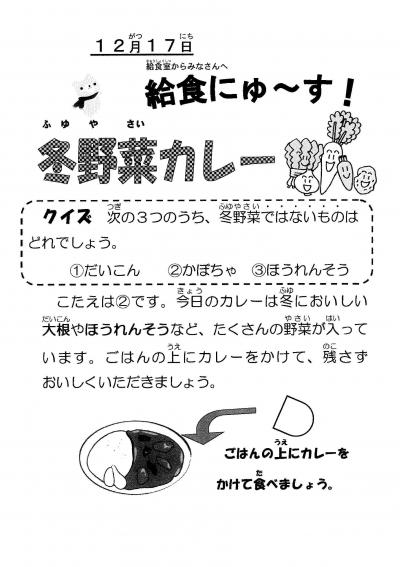 12月17日
給食室からみなさんへ
給食にゅ～す！
冬野菜カレー
クイズ 次の３つのうち、冬野菜ではないものは
どれでしょう。
①だいこん ②かぼちゃ ③ほうれんそう
こたえは②です。今日のカレーは冬においしい
大根やほうれんそうなど、たくさんの野菜が入って
います。ごはんの上にカレーをかけて、残さず
おいしくいただきましょう。
ごはんの上にカレーを
かけて食べましょう。